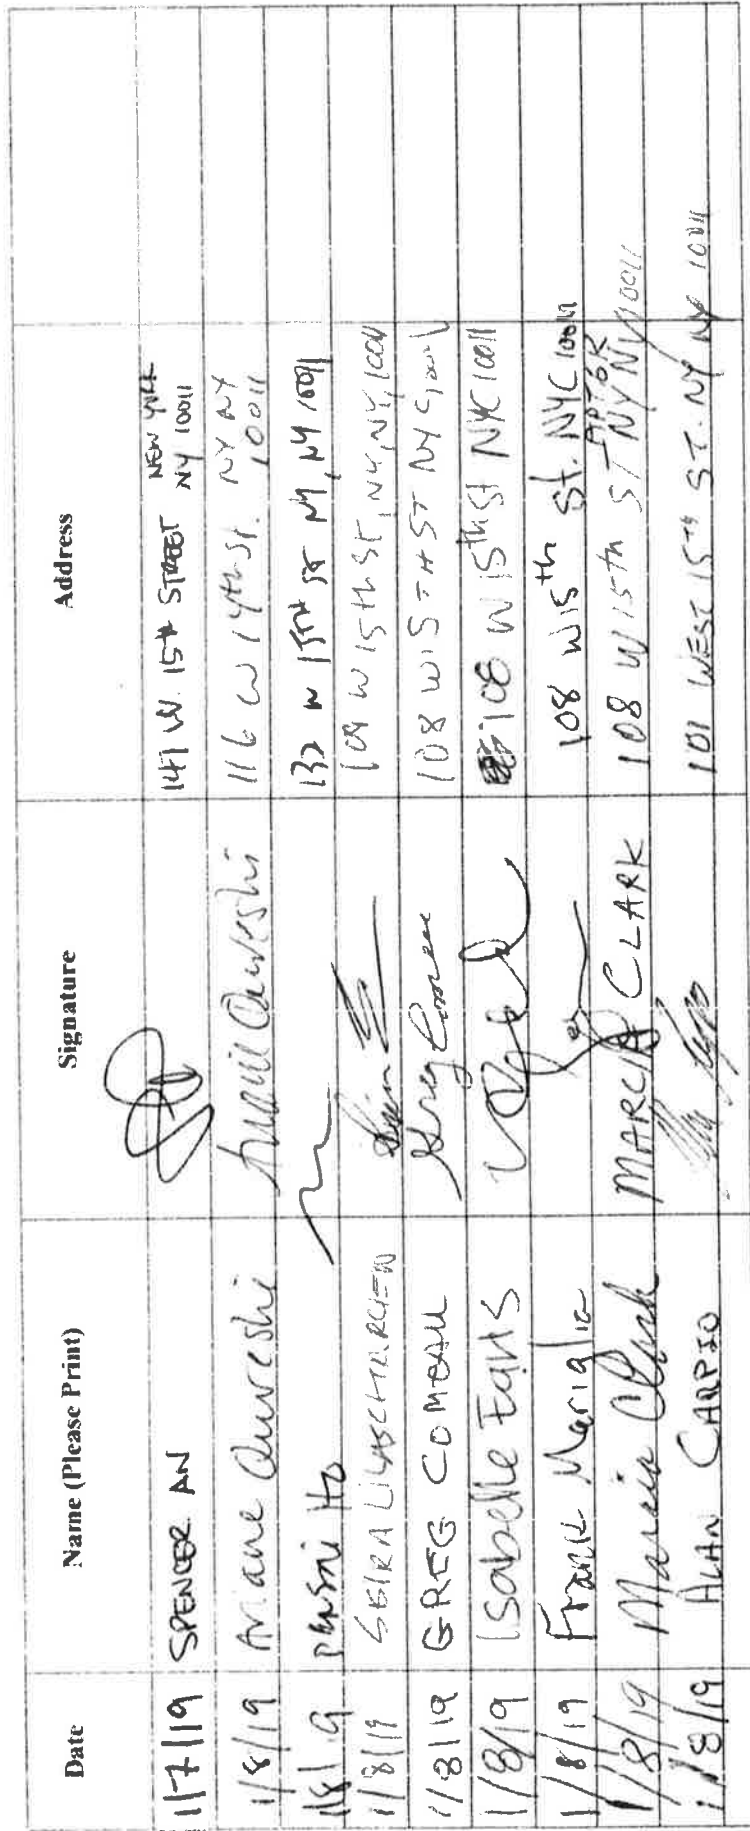 Date Name (Please Print) Signature Address
1/7/19 SPENCER AN 141 W. 15th STREET NEW YORK NY 10011
1/8/19 Ariane Qureshi Ariane Qureshi 116 W 14th St. NY NY 10011
1/8/19 Ho 132 W 15TH ST NY, NY 10011
1/8/19 109 W 15th St, NY, NY, 10011
1/8/19 GREG COMEAU Greg Comeau 108 W 15TH ST NYC 10011
1/8/19 Isabelle 108 W 15th St NYC 10011
1/8/19 Frank Mariglia 108 W 15th St. NYC 10011
1/8/19 Marcia Clark MARCIA CLARK 108 W 15th ST APT 6R NY NY 10011
1/8/19 ALAN CARPIO 101 WEST 15TH ST. NY NY 10011